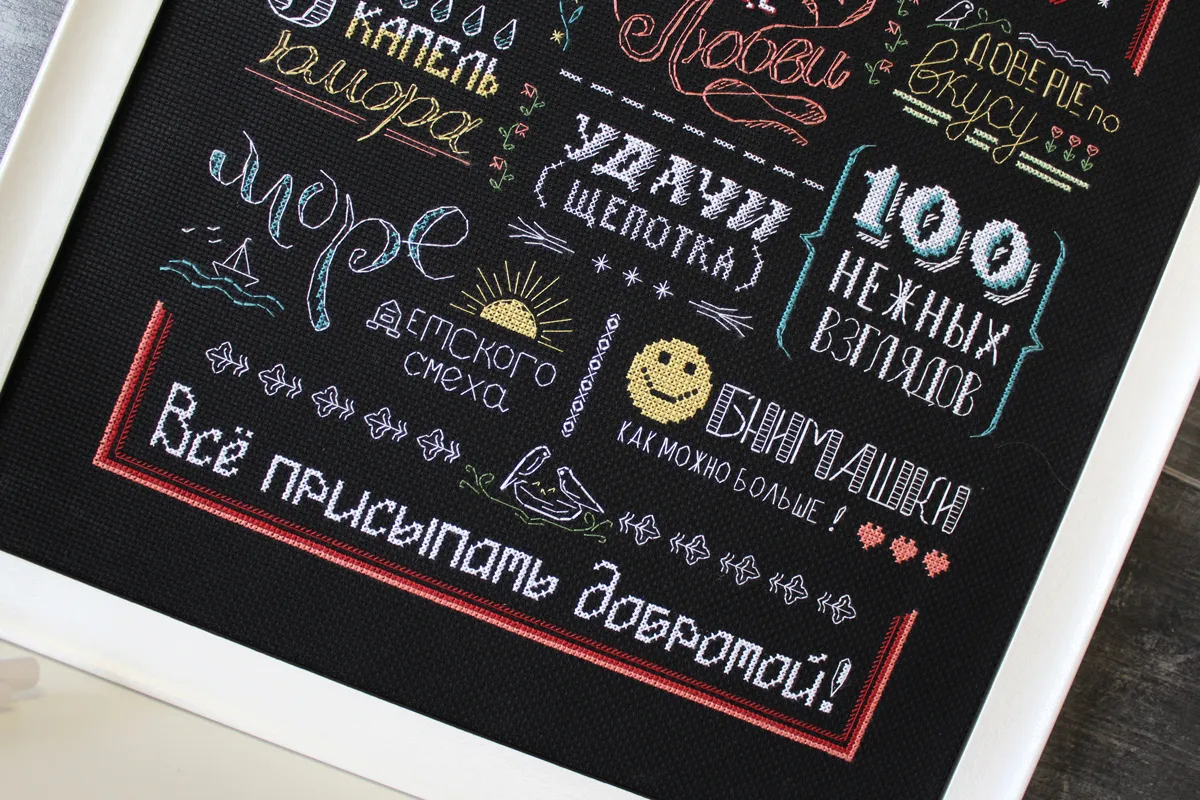 КАПЕЛЬ
юмора
Любви
ДОВЕРИЕ ПО
вкусу
УДАЧИ
(ЩЕПОТКА)
100
НЕЖНЫХ
ВЗГЛЯДОВ
море
ДЕТСКОГО
смеха
БНИМАШКИ
КАК МОЖНО БОЛЬШЕ !
Всё присыпать добротой!